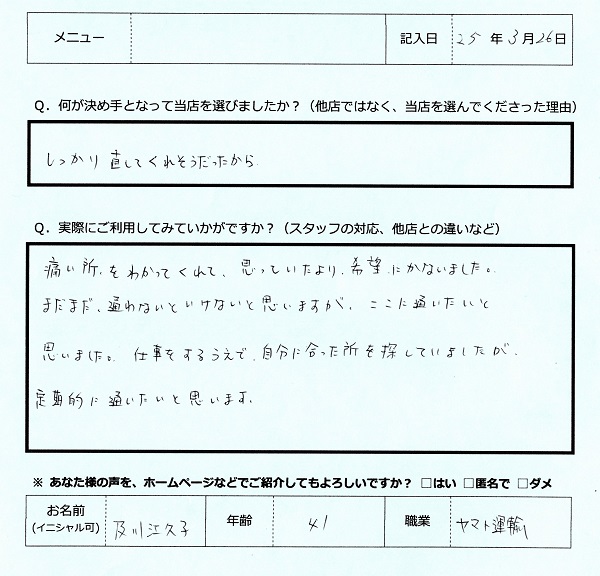 メニュー 記入日 25年3月26日
Q．何が決め手となって当店を選びましたか？（他店ではなく、当店を選んでくださった理由）
しっかり直してくれそうだったから
Q．実際にご利用してみていかがですか？（スタッフの対応、他店との違いなど）
痛い所をわかってくれて、思っていたより、希望にかないました。
まだまだ、通わないといけないと思いますが、ここに通いたいと
思いました。仕事をするうえで、自分に合った所を探していましたが、
定期的に通いたいと思います。
※ あなた様の声を、ホームページなどでご紹介してもよろしいですか？ □はい □匿名で □ダメ
お名前 及川江久子 年齢 41 職業 ヤマト運輸
(イニシャル可)